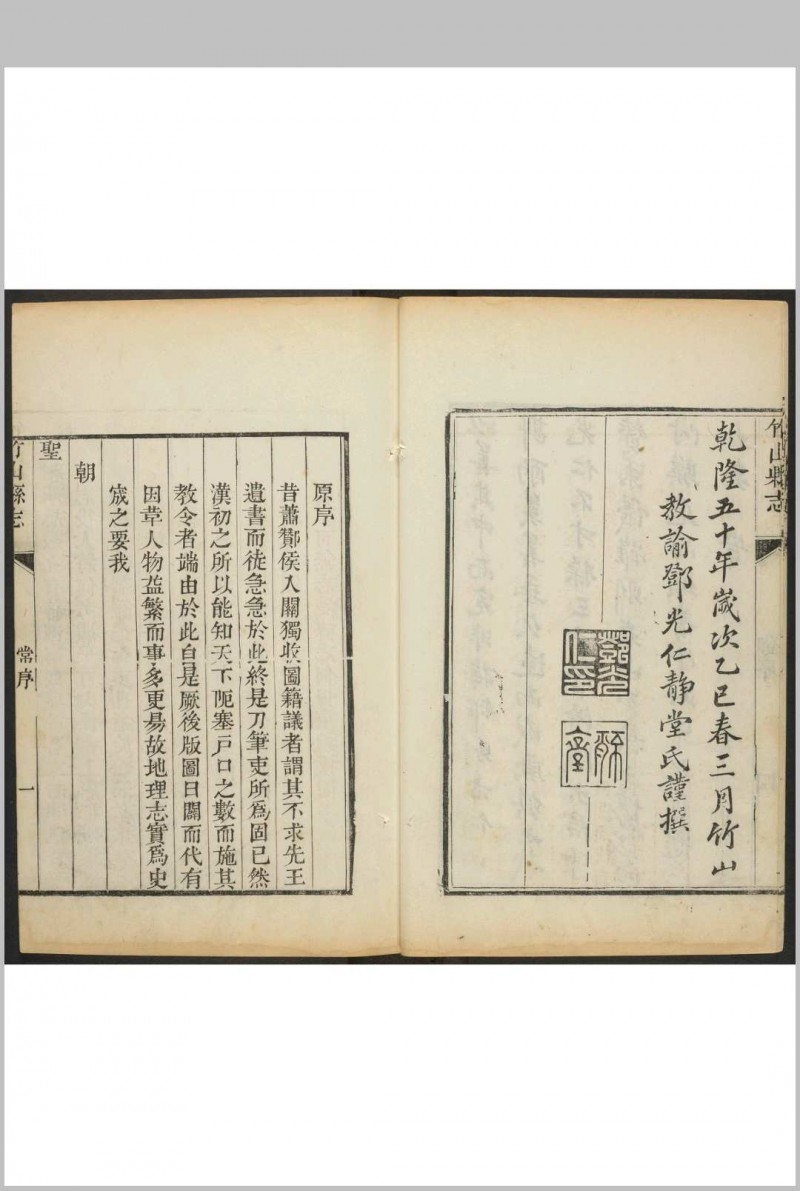 竹山縣志
乾隆五十年歲次乙巳春三月竹山
教諭鄧光仁靜堂氏謹撰
鄧光仁印
原序
昔蕭酇侯入關獨收圖籍議者謂其不求先王
遺書而徒急急於此終是刀筆吏所爲固已然
漢初之所以能知天下阨塞戸口之數而施其
教令者端由於此自是厥後版圖日闢而代有
因草人物益繁而事多更易故地理志實爲史
宬之要我
朝
聖
竹山縣志 常序 一